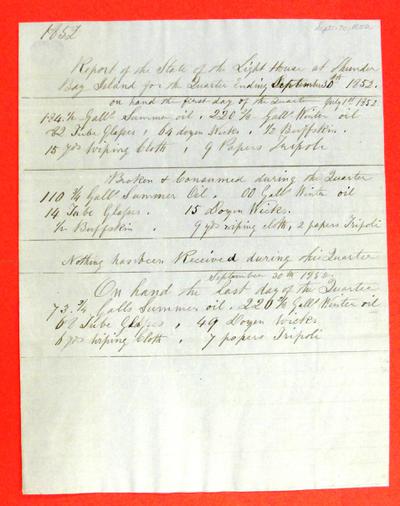 1852
Sept. 30, 1852
Report of the State of the Light House at Thunder
Bay Island for the Quarter Ending September 30th 1852.
on hand the first day of the Quarter July 1st 1852
Galls Summer oil. 220 Galls Winter oil
82 Tube Glasses, 64 dozen Wicks, 1/2 Buffskin.
15 yds Wiping Cloth, 9 Papers Tripoli
Broken & Consumed during the Quarter
110 3/4 Galls Summer Oil. 00 Galls Winter oil
14 Tube Glasses. 15 Dozen Wicks.
1/2 Buffskin. 9 yds wiping cloth, 2 papers Tripoli
Nothing has been Received during this Quarter
September 30th 1852.
On hand the last day of the Quarter
73 3/4 Galls Summer oil. 220 Galls Winter oil
Tube Glasses, 49 Dozen wicks.
6 yds Wiping Cloth, 7 papers Tripoli